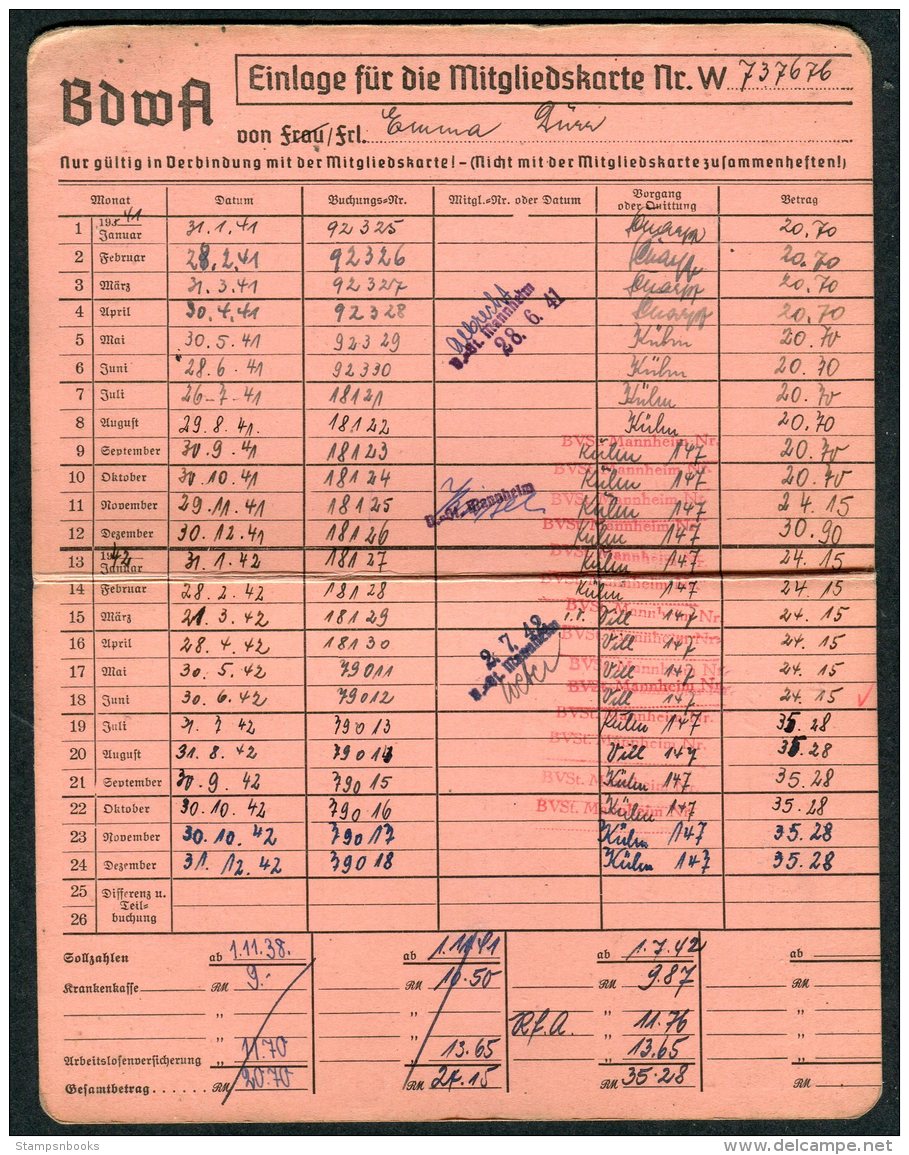 BDWA
Einlage für die Mitgliedskarte Nr. W 737676
von Frau/Frl. Emma Dürr
Nur gültig in Verbindung mit der Mitgliedskarte! – (Nicht mit der Mitgliedskarte zusammenheften!)
Monat Datum Buchungs-Nr. Mitgl.-Nr. oder Datum Vorgang oder Quittung Betrag
1 1941 Januar 31.1.41 92325 20.70
2 Februar 28.2.41 92326 20.70
3 März 31.3.41 92327 20.70
4 April 30.4.41 92328 20.70
Albrecht
V.-St. Mannheim
28. 6. 41
5 Mai 30.5.41 92329 Kühn 20.70
6 Juni 28.6.41 92330 Kühn 20.70
7 Juli 26-7-41 18121 Kühn 20.70
8 August 29.8.41. 18122 Kühn 20.70
BVSt. Mannheim Nr.
9 September 30.9.41 18123 Kühn 147 20.70
BVSt. Mannheim Nr.
10 Oktober 30.10.41 18124 Kühn 147 20.70
BVSt. Mannheim Nr.
11 November 29.11.41 18125 Kühn 147 24.15
V.-St. Mannheim
BVSt. Mannheim Nr.
12 Dezember 30.12.41 18126 Kühn 147 30.90
BVSt. Mannheim Nr.
13 1942 Januar 31.1.42 18127 Kühn 147 24.15
BVSt. Mannheim Nr.
14 Februar 28.2.42 18128 Kühn 147 24.15
BVSt. Mannheim Nr.
15 März 21.3.42 18129 i.V. Vill 147 24.15
BVSt. Mannheim Nr.
16 April 28.4.42 18130 Vill 147 24.15
2. 7. 42
V.-St. Mannheim
Weber
BVSt. Mannheim Nr.
17 Mai 30.5.42 79011 Vill 147 24.15
BVSt. Mannheim Nr.
18 Juni 30.6.42 79012 Vill 147 24.15
BVSt. Mannheim Nr.
19 Juli 31.7.42 79013 Kühn 147 35.28
BVSt. Mannheim Nr.
20 August 31.8.42 79014 Vill 147 35.28
BVSt. Mannheim Nr.
21 September 30.9.42 79015 Kühn 147 35.28
BVSt. Mannheim Nr.
22 Oktober 30.10.42 79016 Kühn 147 35.28
23 November 30.10.42 79017 Kühn 147 35.28
24 Dezember 31.12.42 79018 Kühn 147 35.28
25 Differenz u. Teil-
26 buchung
Sollzahlen ab 1.11.38. ab 1.11.41 ab 1.7.42 ab
Krankenkasse RM 9.- RM 10.50 RM 9.87 RM
„ „ R.f.A. „ 11.76 „
Arbeitslosenversicherung „ 11.70 „ 13.65 „ 13.65 „
Gesamtbetrag RM 20.70 RM 24.15 RM 35.28 RM
Stampsnbooks
www.delcampe.net